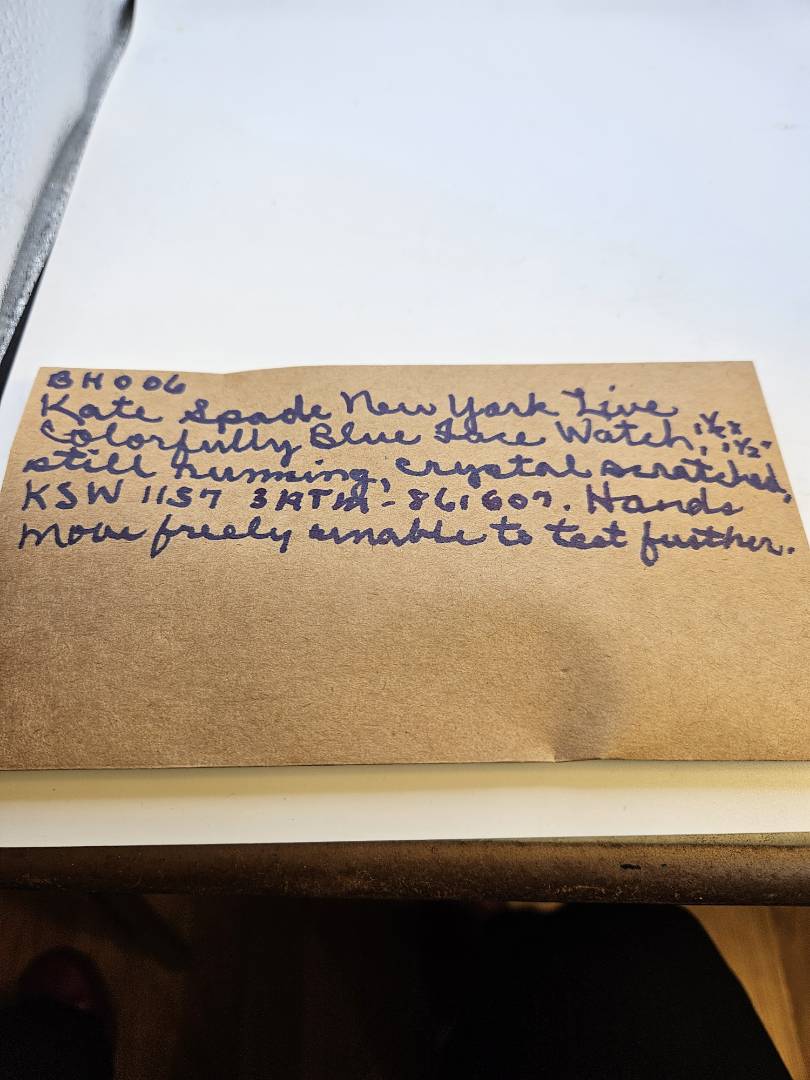 BH006
Kate Spade New York Live
Colorfully Blue Face Watch, 1½ x 1½"
still running, crystal scratched,
KSW 1157 3ATM - 861607. Hands
move freely unable to test further.